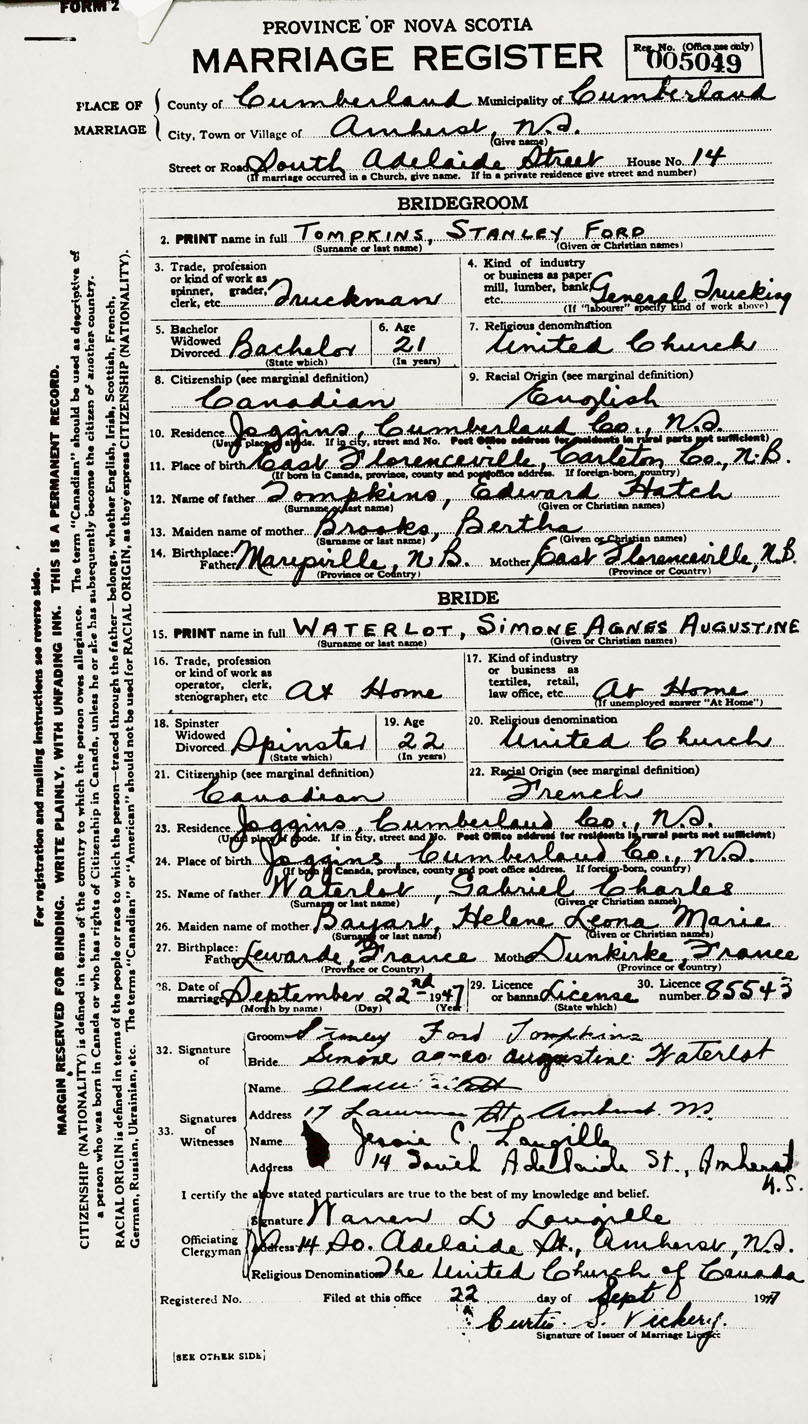 FORM 2
PROVINCE OF NOVA SCOTIA
MARRIAGE REGISTER
Reg. No. (Office use only)
005049
PLACE OF MARRIAGE
County of Cumberland Municipality of Cumberland
City, Town or Village of Amherst, N.S.
(Give name)
Street or Road South Adelaide Street House No. 14
(If marriage occurred in a Church, give name. If in a private residence give street and number)
BRIDEGROOM
2. PRINT name in full TOMPKINS, STANLEY FORD
(Surname or last name) (Given or Christian names)
3. Trade, profession or kind of work as spinner, grader, clerk, etc. Truckman
4. Kind of industry or business as paper mill, lumber, bank, etc. General Trucking
(If "labourer" specify kind of work above)
5. Bachelor Widowed Divorced Bachelor
(State which)
6. Age 21
(In years)
7. Religious denomination United Church
8. Citizenship (see marginal definition) Canadian
9. Racial Origin (see marginal definition) English
10. Residence Joggins, Cumberland Co., N.S.
(Usual place of abode. If in city, street and No. Post Office address for residents in rural parts not sufficient)
11. Place of birth East Florenceville, Carleton Co., N.B.
(If born in Canada, province, county and postoffice address. If foreign-born, country)
12. Name of father Tompkins, Edward Hatch
(Surname or last name) (Given or Christian names)
13. Maiden name of mother Brooks, Bertha
(Surname or last name) (Given or Christian names)
14. Birthplace: Father N.B. Mother East Florenceville, N.B.
(Province or Country) (Province or Country)
BRIDE
15. PRINT name in full WATERLOT, SIMONE AGNES AUGUSTINE
(Surname or last name) (Given or Christian names)
16. Trade, profession or kind of work as operator, clerk, stenographer, etc At Home
17. Kind of industry or business as textiles, retail, law office, etc. At Home
(If unemployed answer "At Home")
18. Spinster Widowed Divorced Spinster
(State which)
19. Age 22
(In years)
20. Religious denomination United Church
21. Citizenship (see marginal definition) Canadian
22. Racial Origin (see marginal definition) French
23. Residence Joggins, Cumberland Co., N.S.
(Usual place of abode. If in city, street and No. Post Office address for residents in rural parts not sufficient)
24. Place of birth Joggins, Cumberland Co., N.S.
(If born in Canada, province, county and post office address. If foreign-born, country)
25. Name of father Waterlot, Gabriel Charles
(Surname or last name) (Given or Christian names)
26. Maiden name of mother Bayart, Helene Leona Marie
(Surname or last name) (Given or Christian names)
27. Birthplace: Father Lewarde, France Mother Dunkirke, France
(Province or Country) (Province or Country)
28. Date of marriage September 22nd 1947
(Month by name) (Day) (Year)
29. Licence or banns License
(State which)
30. Licence number 85543
32. Signature of
Groom Stanley Ford Tompkins
Bride Simone Agnes Augustine Waterlot
33. Signatures of Witnesses
Name
Address 17 Lawrence St. Amherst N.S.
Name Jessie C. Langille
Address 14 South Adelaide St., Amherst N.S.
I certify the above stated particulars are true to the best of my knowledge and belief.
Officiating Clergyman
Signature Warren D. Langille
Address 14 So. Adelaide St., Amherst, N.S.
Religious Denomination The United Church of Canada
Registered No. Filed at this office 22 day of Sept 1947
Curtis S. Vickery.
Signature of Issuer of Marriage License
[SEE OTHER SIDE]
For registration and mailing instructions see reverse side.
MARGIN RESERVED FOR BINDING. WRITE PLAINLY, WITH UNFADING INK. THIS IS A PERMANENT RECORD.
CITIZENSHIP (NATIONALITY) is defined in terms of the country to which the person owes allegiance. The term "Canadian" should be used as descriptive of
a person who was born in Canada or who has rights of Citizenship in Canada, unless he or she has subsequently become the citizen of another country.
RACIAL ORIGIN is defined in terms of the people or race to which the person—traced through the father—belongs, whether English, Irish, Scottish, French,
German, Russian, Ukrainian, etc. The terms "Canadian" or "American" should not be used for RACIAL ORIGIN, as they express CITIZENSHIP (NATIONALITY).